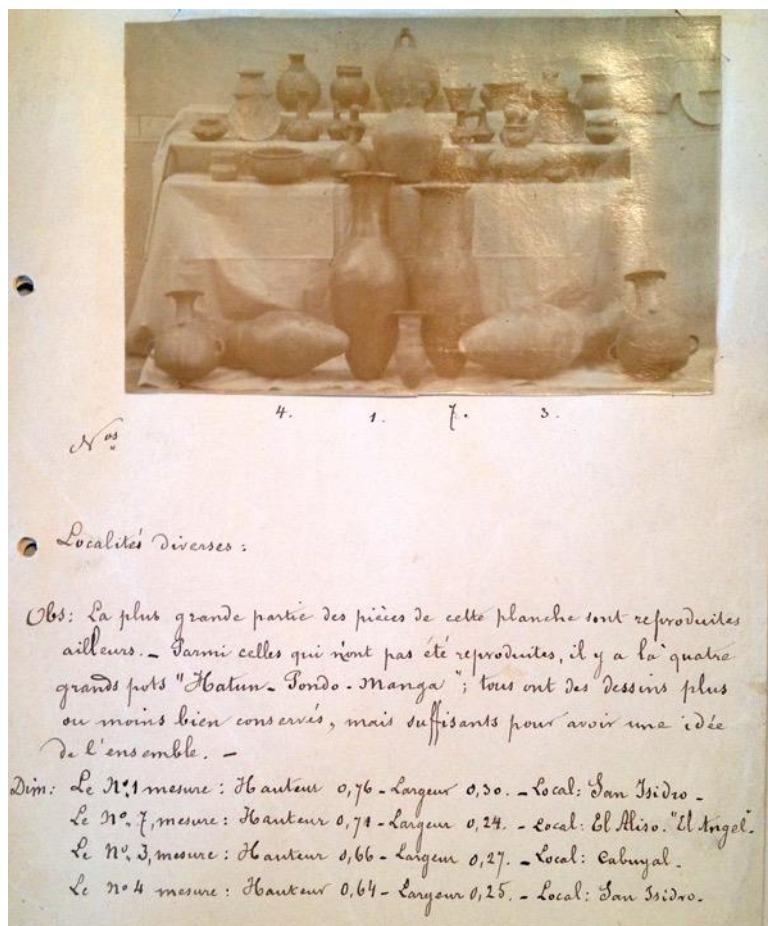 4. 1. 7. 3.
Nos
Localités diverses :
Obs: La plus grande partie des pièces de cette planche sont reproduites
ailleurs. – Parmi celles qui n'ont pas été reproduites, il y a là quatre
grands pots "Hatun-Pondo-Manga"; tous ont des dessins plus
ou moins bien conservés, mais suffisants pour avoir une idée
de l'ensemble. –
Dim: Le No.1 mesure : Hauteur 0,76 – Largeur 0,30. – Local: San Isidro –
Le No. 7, mesure : Hauteur 0,71 – Largeur 0,24. – Local: El Aliso. "El Angel".
Le No. 3, mesure : Hauteur 0,66 – Largeur 0,27. – Local: Cabuyal.
Le no 4 mesure : Hauteur 0,64 – Largeur 0,25. – Local: San Isidro.